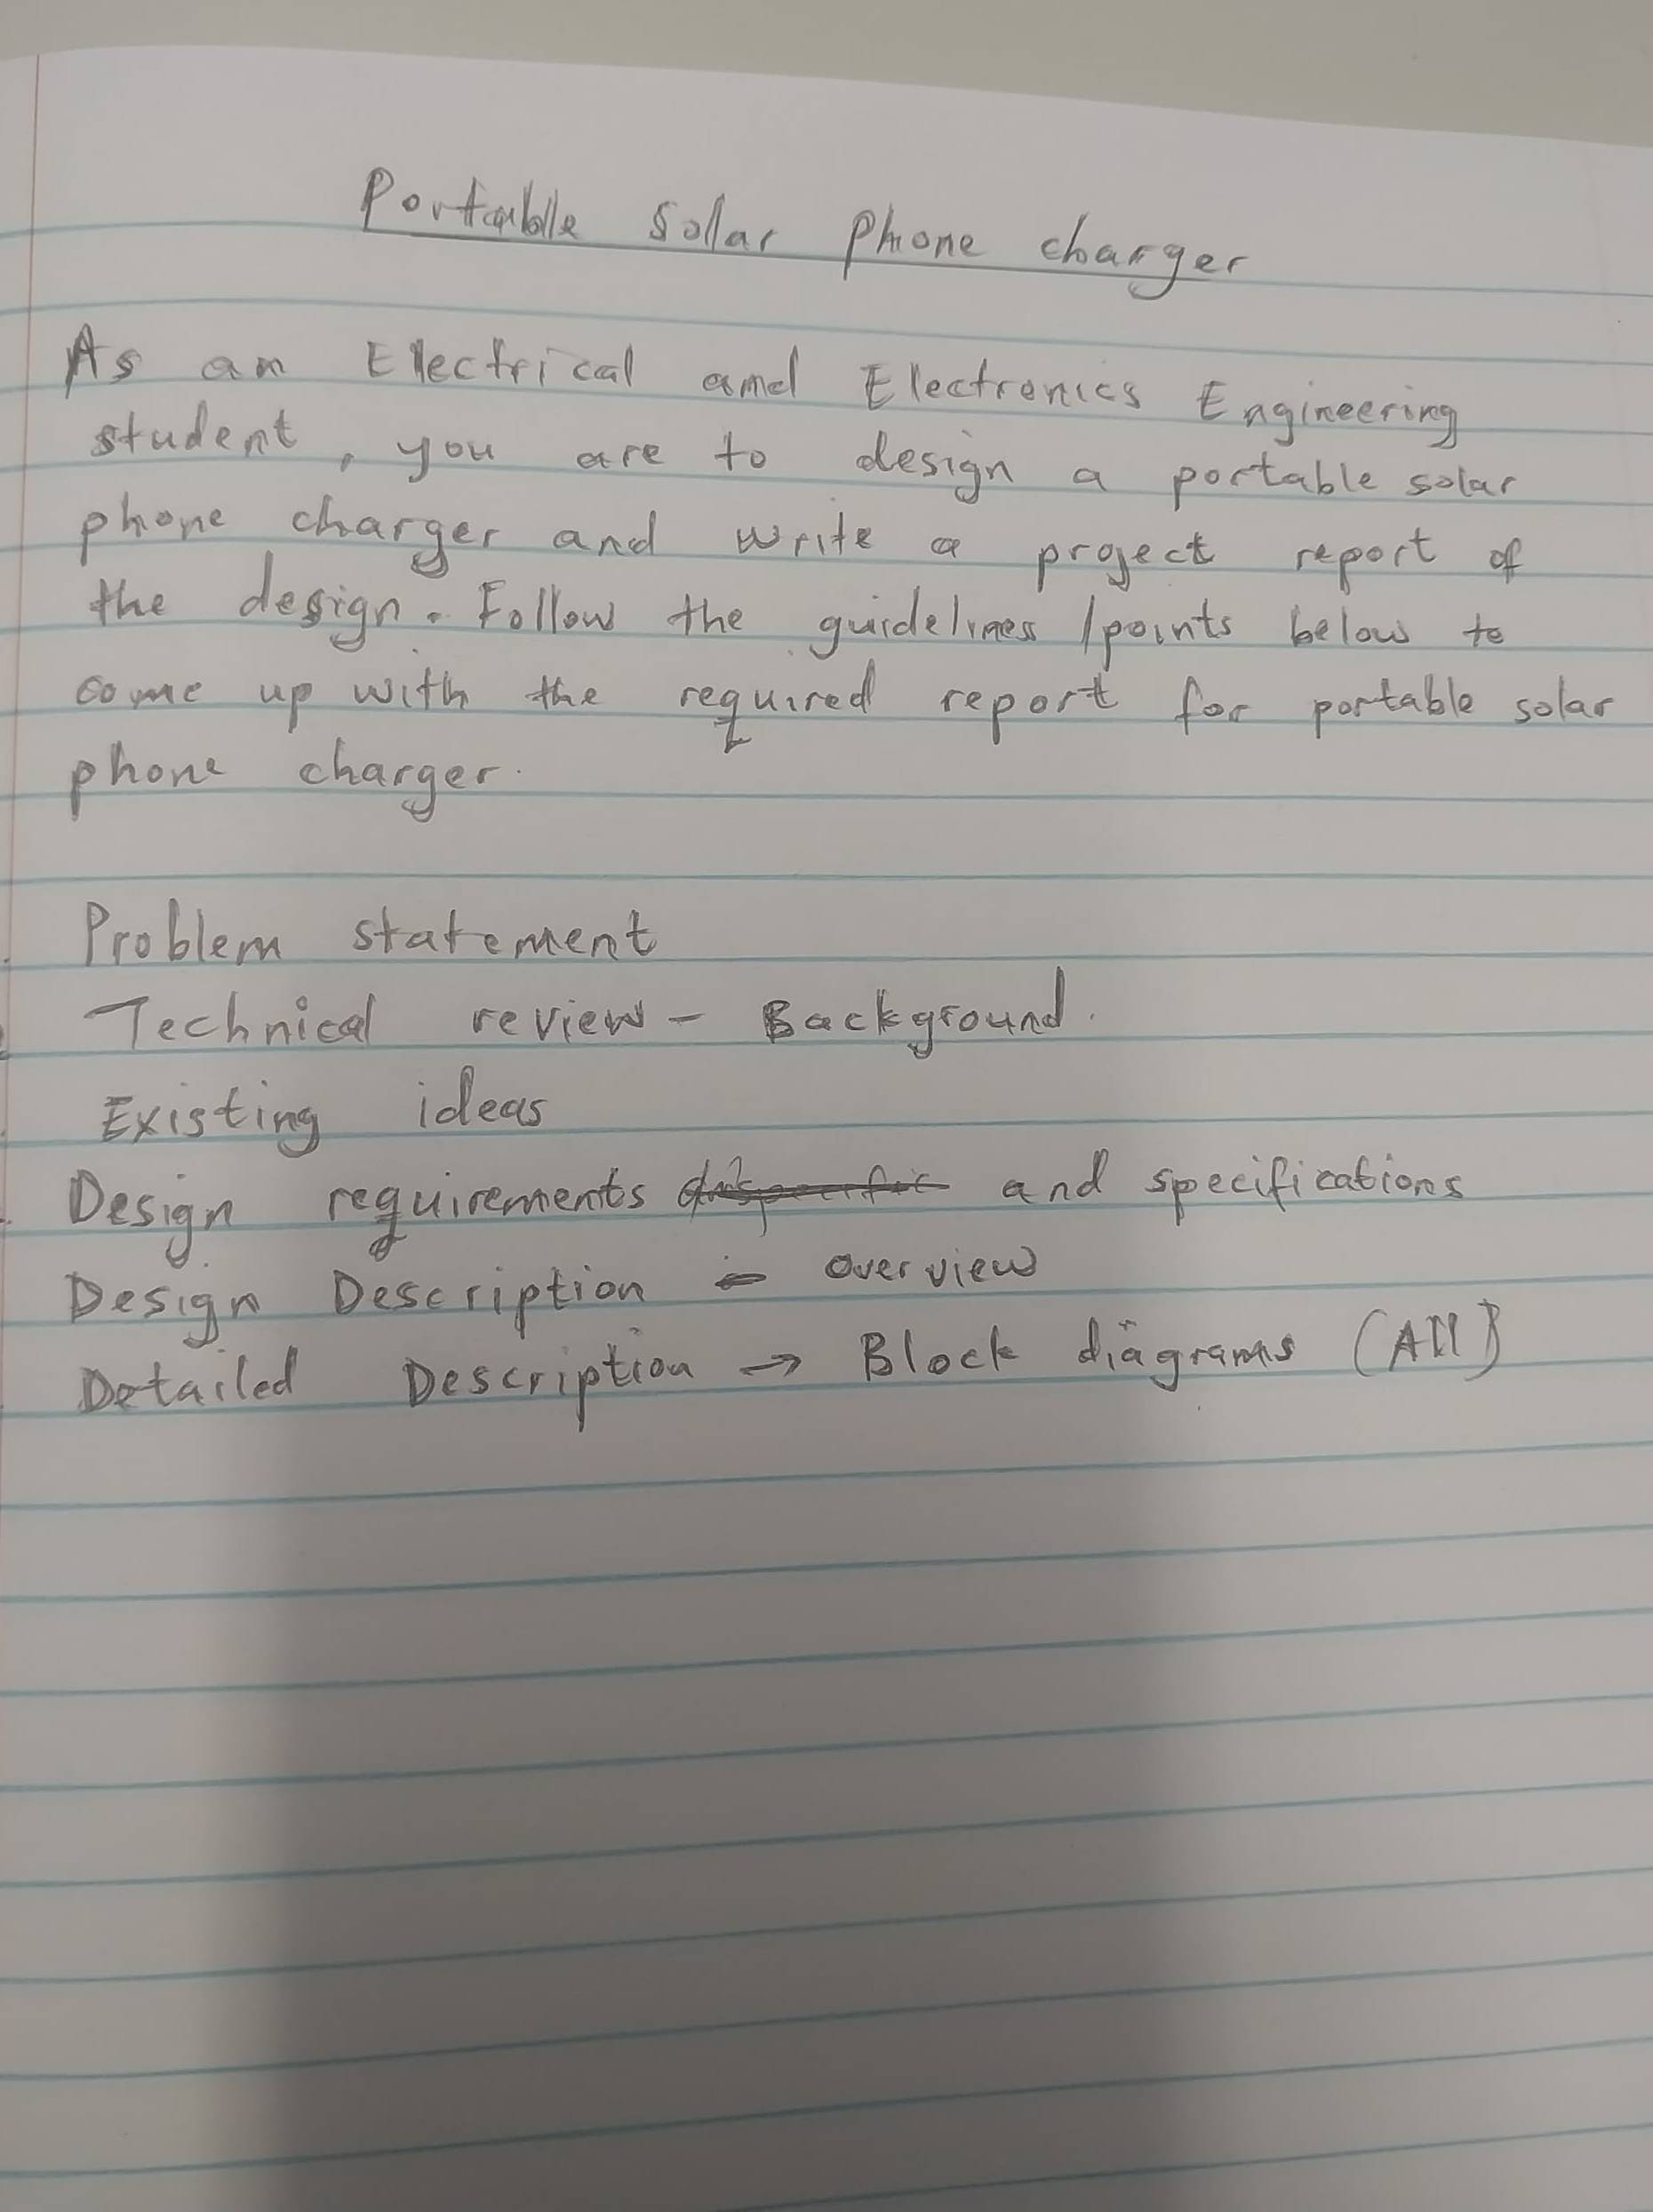 Portable solar phone charger
As an Electrical and Electronics Engineering
student, you are to design a portable solar
phone charger and write a project report of
the design. Follow the guidelines / points below to
come up with the required report for portable solar
phone charger.
Problem statement
Technical review - Background.
Existing ideas
Design requirements and specifications
Design Description - overview
Detailed Description → Block diagrams (All)